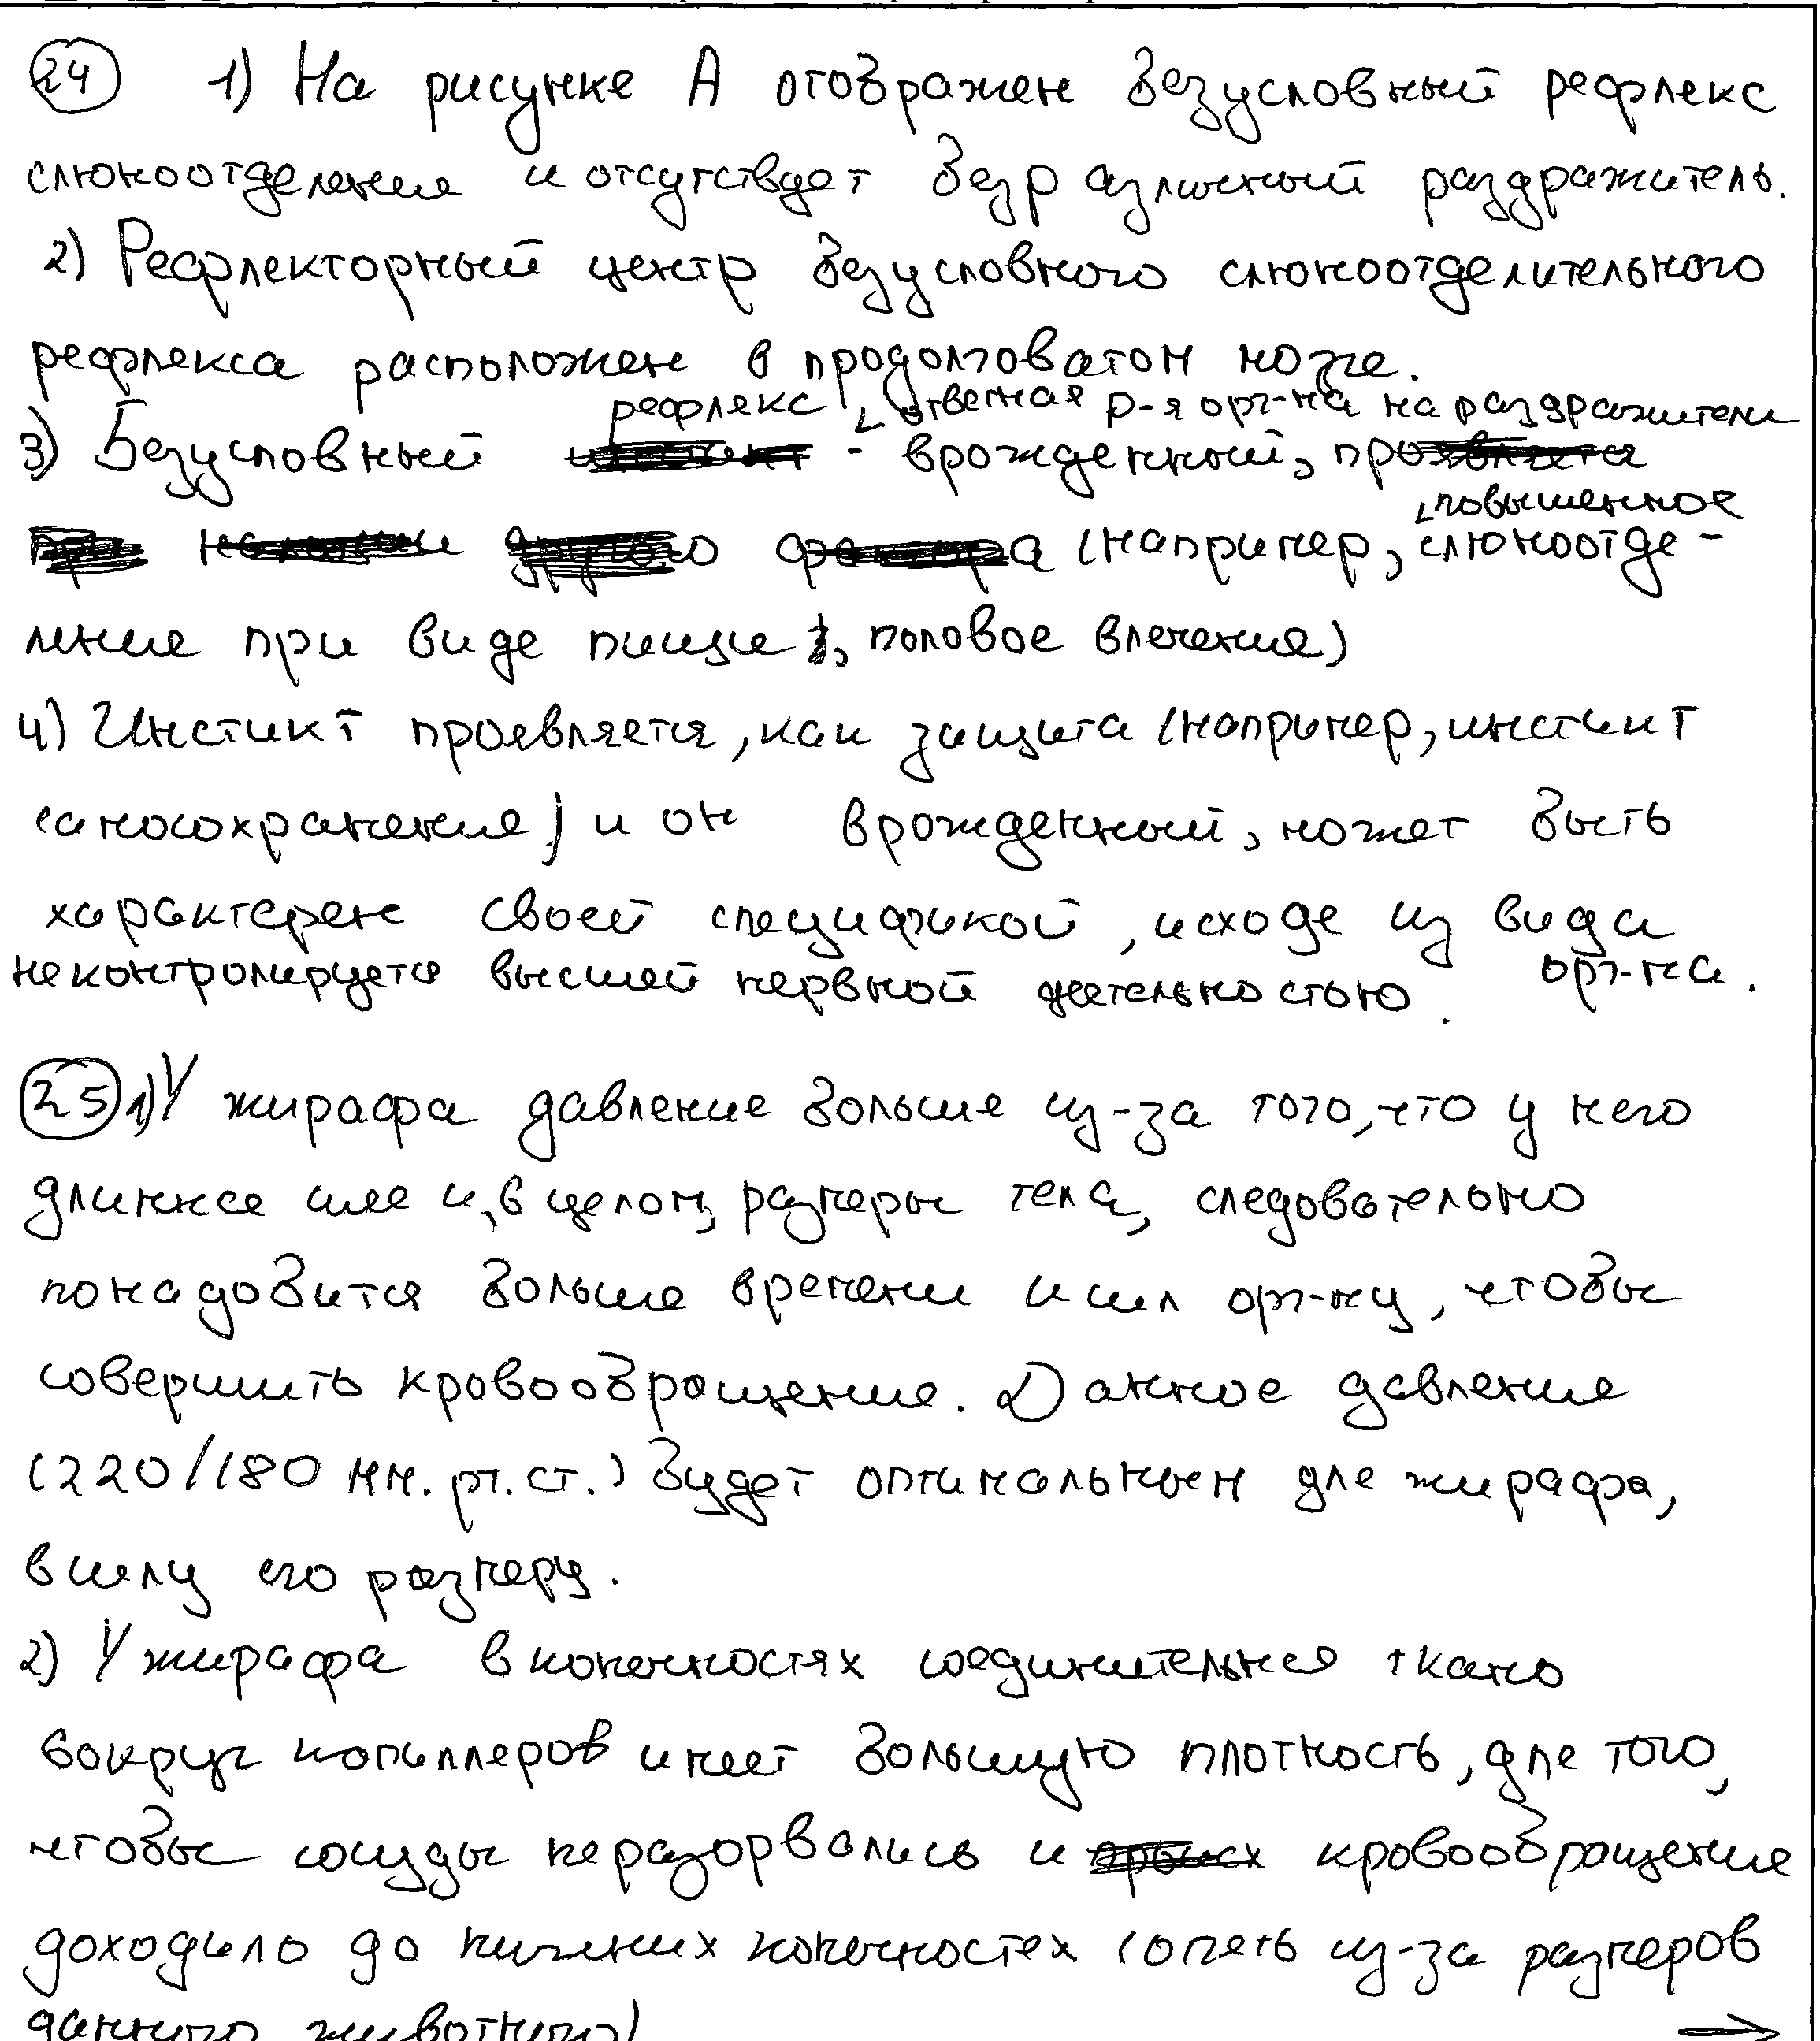 24 1) На рисунке А отображен безусловный рефлекс
слюноотделение и отсутствует безразличный раздражитель.
2) Рефлекторный центр безусловного слюноотделительного
рефлекса расположен в продолговатом мозге.
рефлекс ответная р-я орг-ма на раздражители
3) Безусловный - врожденный,
повышенное
(например, слюноотде-
ление при виде пищи, половое влечение)
4) Инстикт проявляется, как защита (например, инстинкт
самосохранения) и он врожденный, может быть
характерен своей спецификой, исходе из вида
орг-ма.
неконтролируется высшей нервной деятельностью.
25 1) У жирафа давление больше из-за того, что у него
длинная шея и, в целом, размеры тела, следовательно
понадобится больше времени и сил орг-му, чтобы
совершить кровообращение. Данное давление
(220/180 мм. рт. ст.) будет оптимальным для жирафа,
в силу его размеру.
2) У жирафа в конечностях соединительная ткань
вокруг капилляров имеет большую плотность, для того,
чтобы сосуды неразорвались и кровообращение
доходило до нижних конечностех (опять из-за размеров
данного животного)